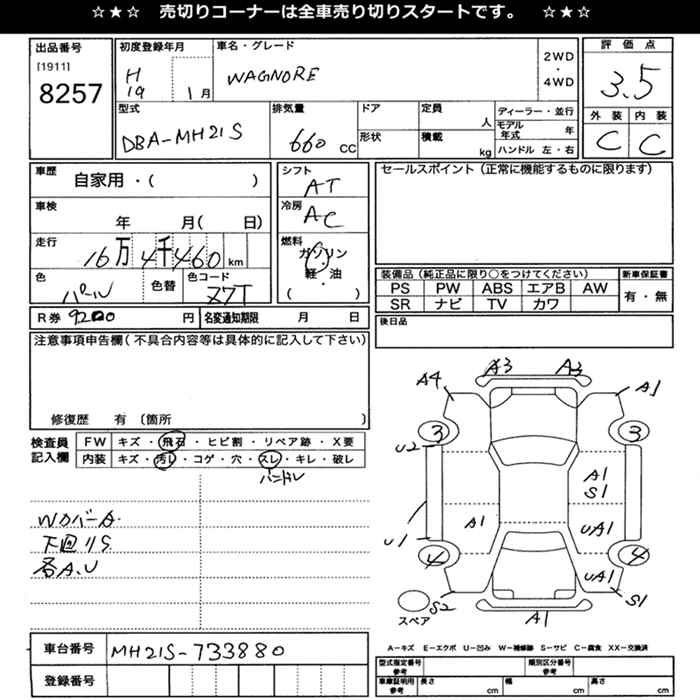 ☆★☆ 売切りコーナーは全車売り切りスタートです。 ☆★☆
出品番号
[1911]
8257
初度登録年月
H
19 1月
車名・グレード
WAGNORE
2WD
・
4WD
評価点
3.5
外装 内装
C C
型式
DBA-MH21S
排気量
660 CC
ドア
形状
定員 人
積載 kg
ディーラー・並行
モデル年式 年
ハンドル 左・右
車歴
自家用・( )
車検
年 月( 日)
走行
16万4千460 km
色
パール
色替
色コード
Z7T
シフト
AT
冷房
AC
燃料
ガソリン
軽・油
( )
セールスポイント (正常に機能するものに限ります)
装備品 (純正品に限り○をつけてください)
PS PW ABS エアB AW
SR ナビ TV カワ
新車保証書
有・無
R券 9200 円
名変通知期限 月 日
後日品
注意事項申告欄(不具合内容等は具体的に記入して下さい)
修復歴 有 〔箇所 〕
検査員
記入欄
FW キズ・飛石・ヒビ割・リペア跡・X要
内装 キズ・汚レ・コゲ・穴・スレ・キレ・破レ
ハンドル
Wカバー A
下回りS
各A.U
A4 A3 A3 A1
3 3
U2
A1
S1
A1 UA1
U1
4 4
UA1
S2 A1 S1
スペア
A―キズ E―エクボ U―凹み W―補修跡 S―サビ C―腐食 XX―交換済
車台番号 MH21S-733880
登録番号
型式指定番号
参考
類別区分番号
参考
車庫証明用
参考
長さ cm 幅 cm 高さ cm